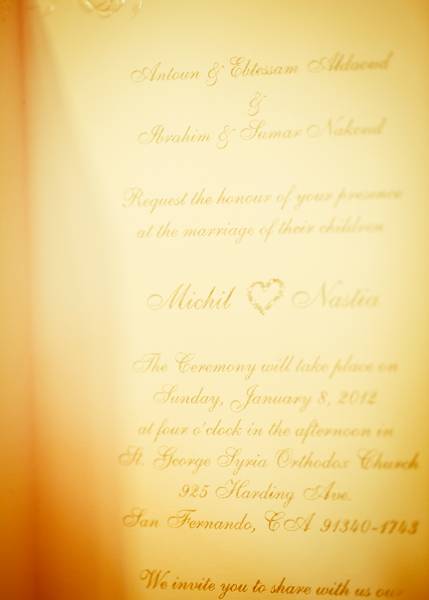 Antoun & Ebtessam Aldaoud
&
Ibrahim & Sumar Nakoud
Request the honour of your presence
at the marriage of their children
Michil Nastia
The Ceremony will take place on
Sunday, January 8, 2012
at four o'clock in the afternoon in
St. George Syria Orthodox Church
925 Harding Ave.
San Fernando, CA 91340-1743
We invite you to share with us our